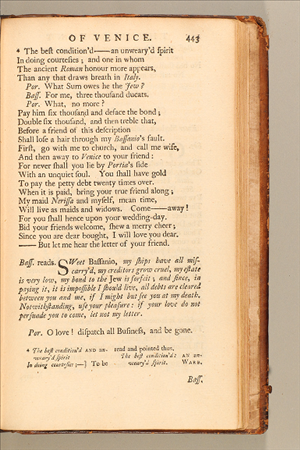 OF VENICE. 443
* The beſt condition'd——an unweary'd ſpirit
In doing courteſies; and one in whom
The ancient Roman honour more appears,
Than any that draws breath in Italy.
Por. What Sum owes he the Jew?
Baſſ. For me, three thouſand ducats.
Por. What, no more?
Pay him ſix thouſand and deface the bond;
Double ſix thouſand, and then treble that,
Before a friend of this deſcription
Shall loſe a hair through my Baſſanio's fault.
Firſt, go with me to church, and call me wife,
And then away to Venice to your friend:
For never ſhall you lie by Portia's ſide
With an unquiet ſoul. You ſhall have gold
To pay the petty debt twenty times over.
When it is paid, bring your true friend along;
My maid Neriſſa and myſelf, mean time,
Will live as maids and widows. Come——away!
For you ſhall hence upon your wedding-day.
Bid your friends welcome, ſhew a merry cheer;
Since you are dear bought, I will love you dear.
—— But let me hear the letter of your friend.
Baſſ. reads. SWeet Baſſanio, my ſhips have all miſ-
carry'd, my creditors grow cruel, my eſtate
is very low, my bond to the Jew is forfeit; and ſince, in
paying it, it is impoſſible I ſhould live, all debts are cleared
between you and me, if I might but ſee you at my death.
Notwithſtanding, uſe your pleaſure: if your love do not
perſuade you to come, let not my letter.
Por. O love! diſpatch all Buſineſs, and be gone.
* The beſt condition'd AND UN-
weary'd ſpirit
In doing courteſies;—] To be
read and pointed thus,
The beſt condition'd: AN UN-
weary'd ſpirit. WARB.
Baſſ.